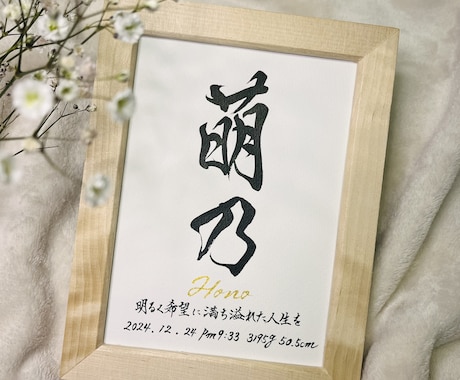 萌乃
Hono
明るく希望に満ち溢れた人生を
2024.12.24 Pm9:33 3195g 50.5cm